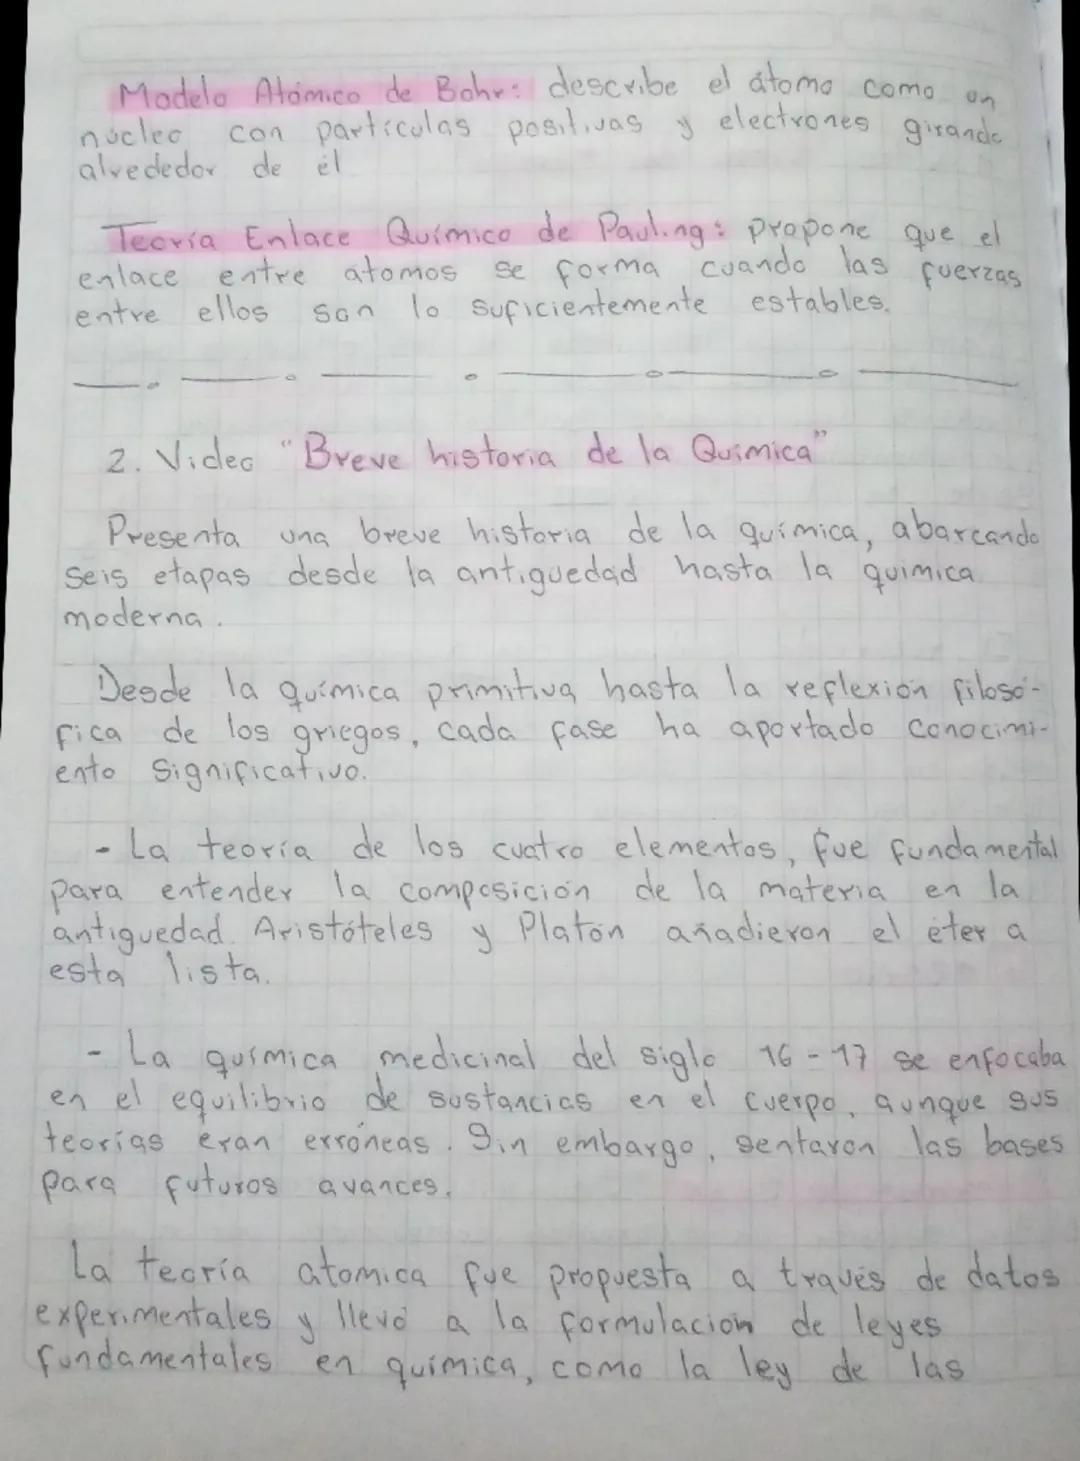 Modelo Atómico de Bohr: describe el átomo como un
núcleo con partículas positivas y electrones girando
alrededor de él
Teoría Enlace Químico de Pauling: propone que el
enlace entre átomos se forma cuando las fuerzas
entre ellos son lo suficientemente estables.
2. Video "Breve historia de la Química"
Presenta una breve historia de la química, abarcando
seis etapas desde la antiguedad hasta la química
moderna.
Desde la química primitiva hasta la reflexión filosó-
fica de los griegos, cada fase ha aportado conocimi-
ento significativo.
- La teoría de los cuatro elementos, fue fundamental
para entender la composición de la materia en la
antiguedad. Aristóteles y Platón añadieron el éter a
esta lista.
- La química medicinal del siglo 16 - 17 se enfocaba
en el equilibrio de sustancias en el cuerpo, aunque sus
teorías eran erróneas. Sin embargo, sentaron las bases
para futuros avances.
La teoría atomica fue propuesta a través de datos
experimentales y llevó a la formulación de leyes
fundamentales en química, como la ley de las